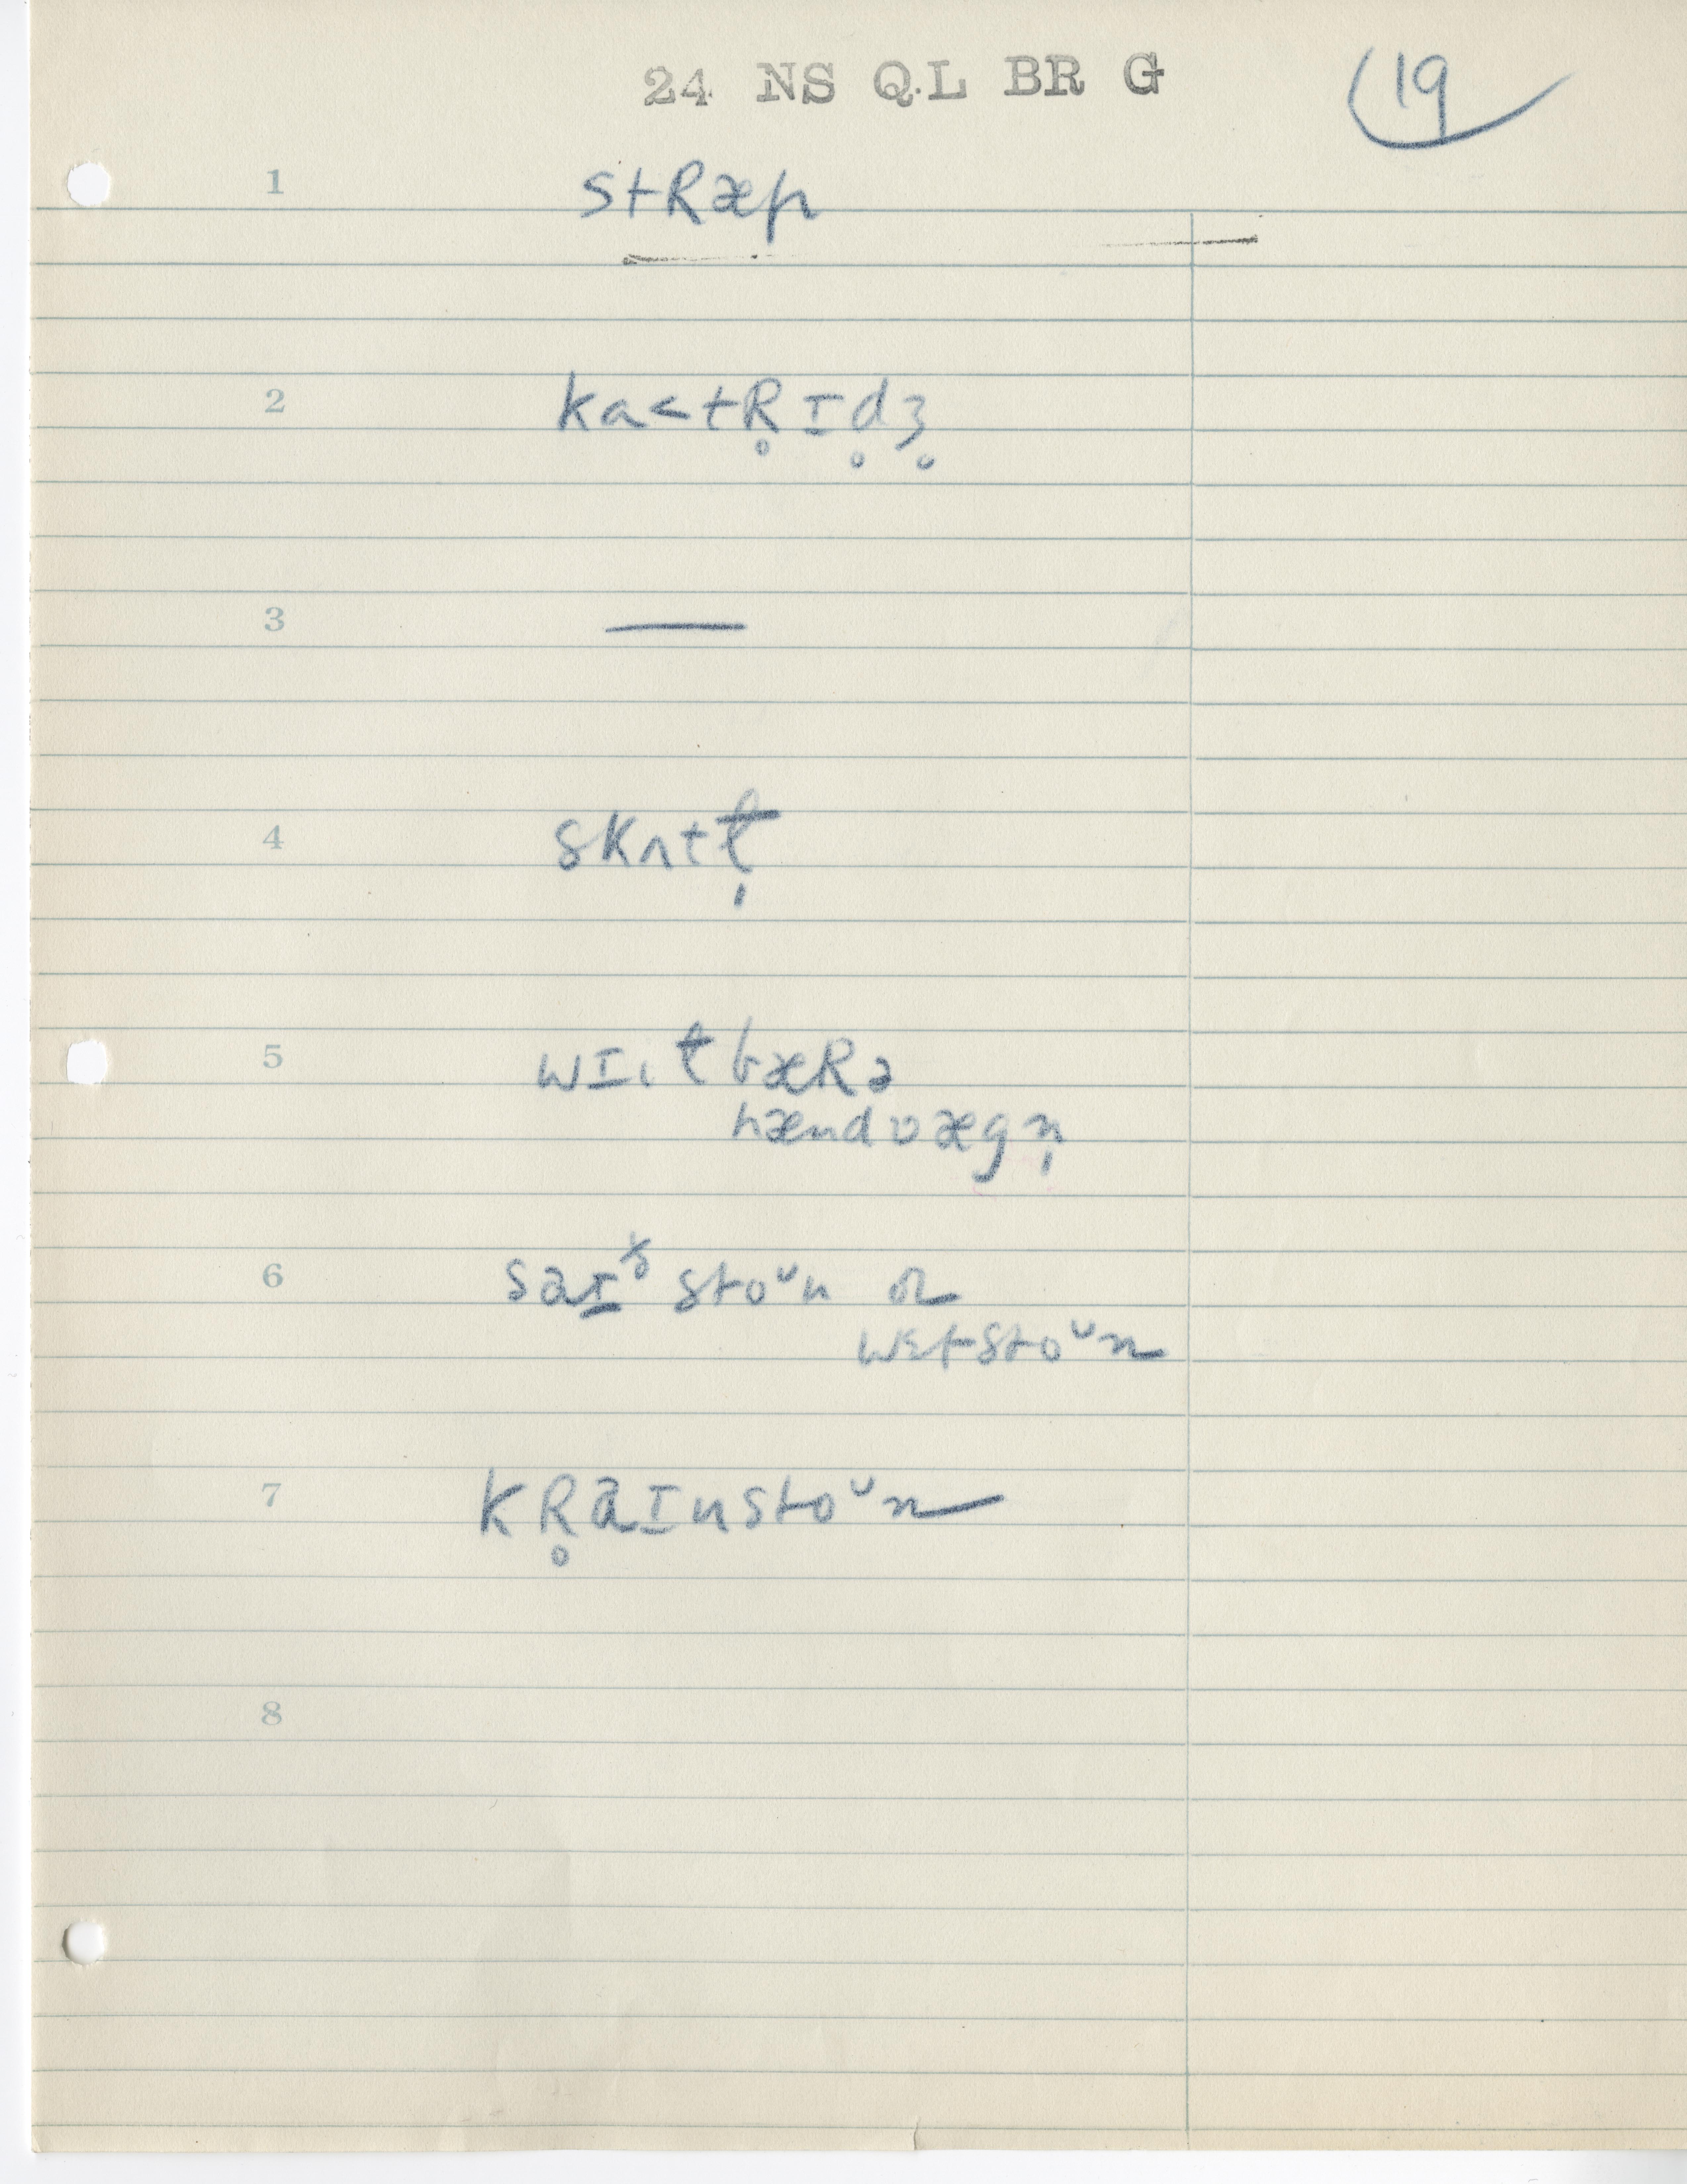 24 NS Q.L BR G
19
1 stRæp
2 ka<tR̥ɪd̥ʒ̊
3 —
4 skʌtɫ̩
5 wɪ ɫbæRə
hændvægn̩
6 stoᵘn or
wɛtstoᵘn
7 kR̥aɪnstoᵘn
8